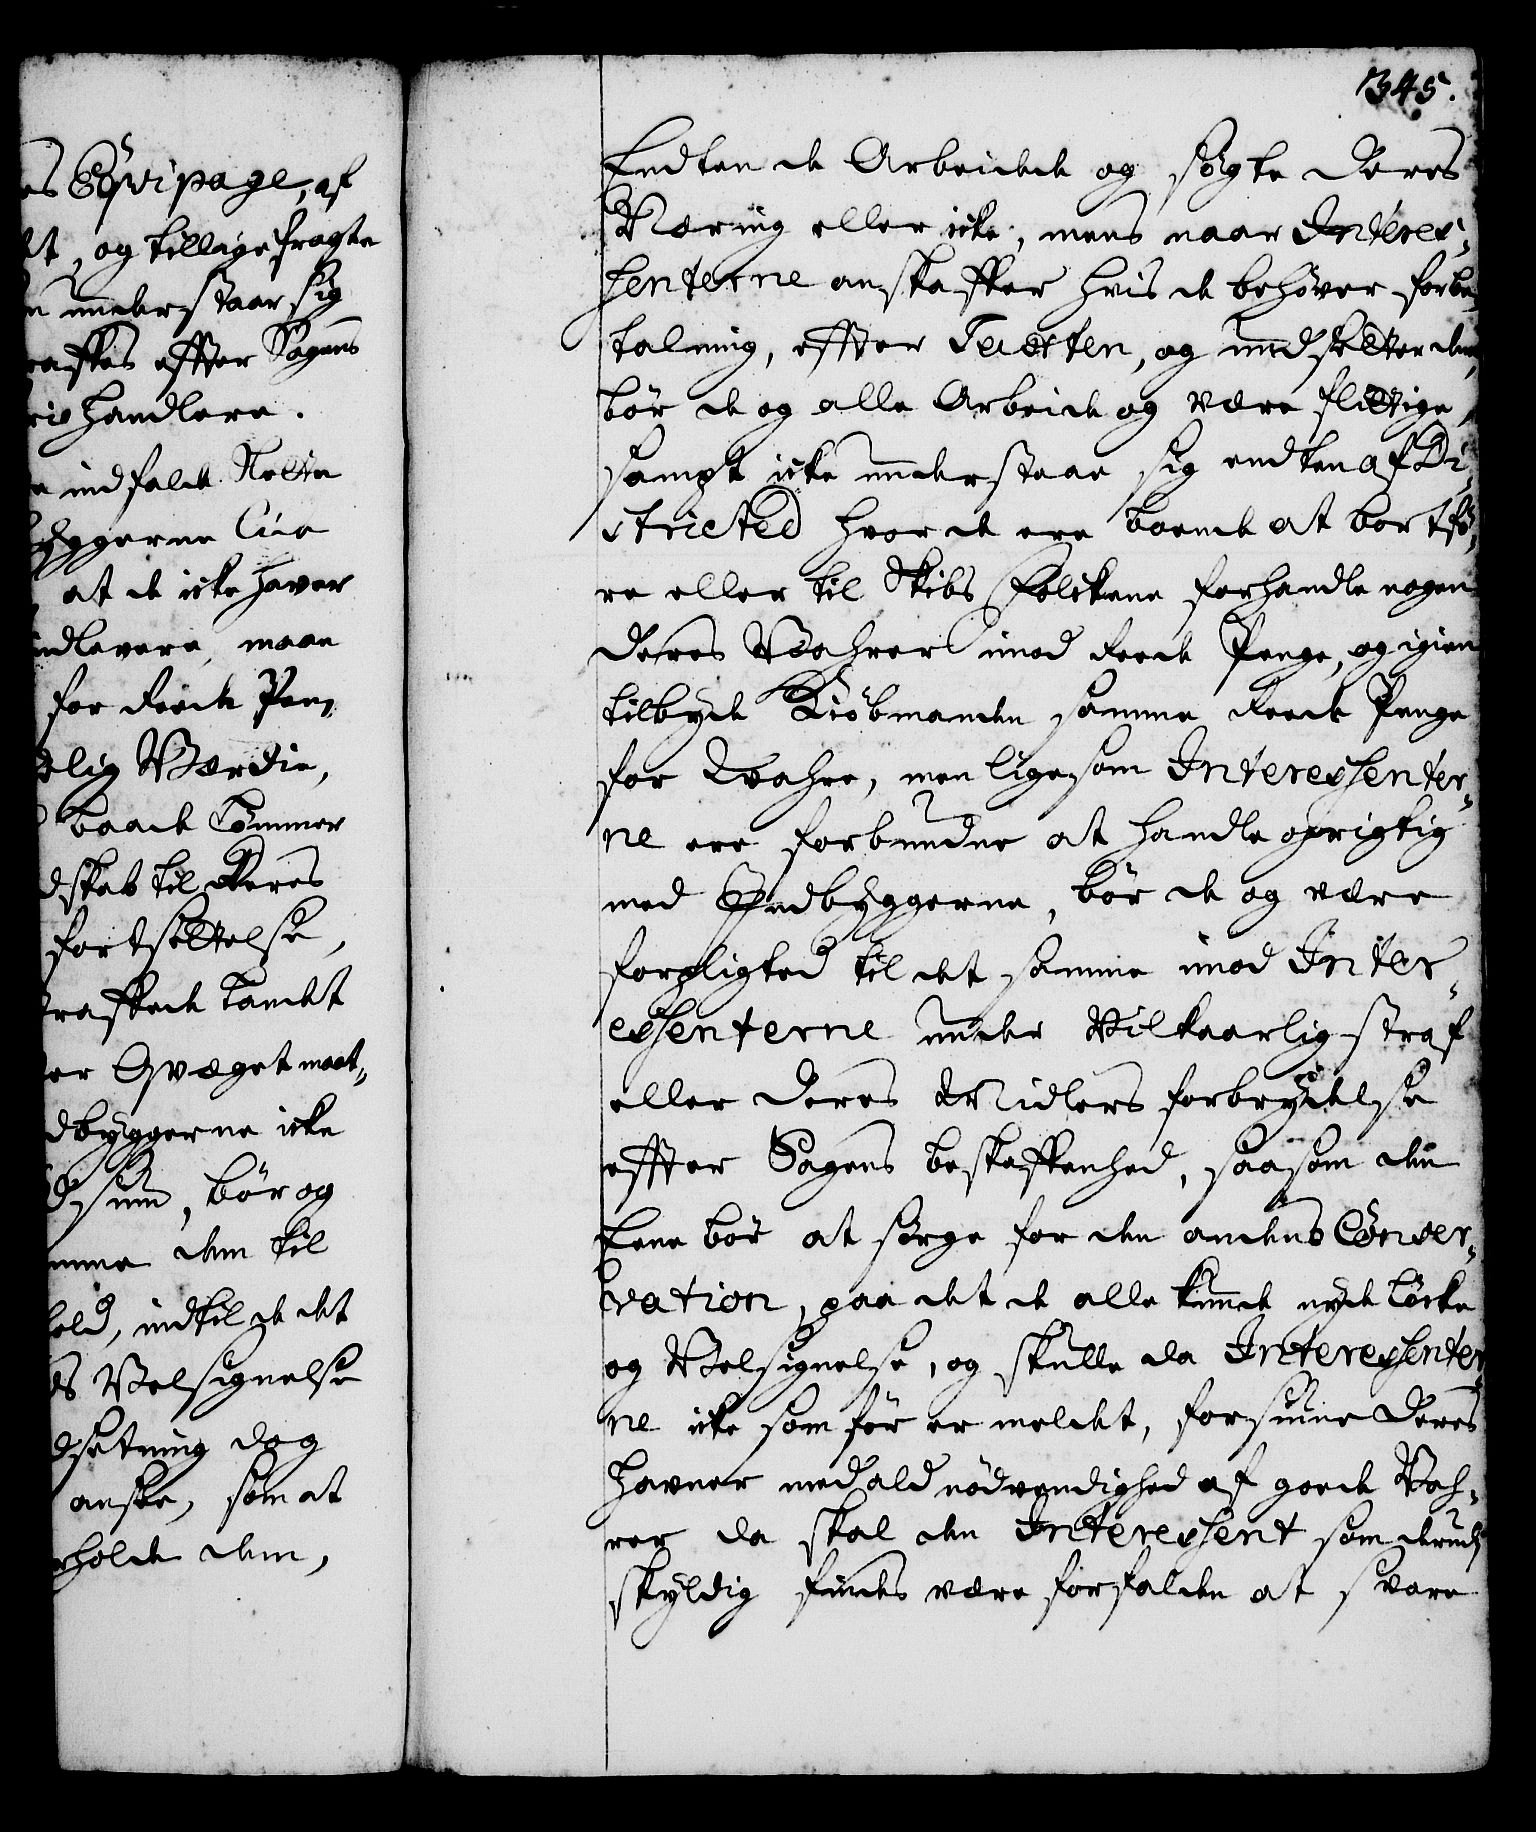 345.
es Eqvipage, af
dt, og tillige fragte
n understaar sig
raffes effter Sagens
ris handlere.
indfalde
byggerne
at de icke haver
indlevere, maae
for reede Pen,
delig Værdie,
baade Tømmer
dskab til deres
fortsettelse,
straffede Landet
er Qvæget maat,
dbyggerne icke
bør og
mme dem til
hold, indtil de det
ds Velsignelse
dsetning dog
anske, som at
rholde dem,
Endten de Arbeidede og søgte deres
Næring eller icke, mens naar Interes,
senterne anskaffer hvis de behøver for be,
talning, effter Taxten, og undsetter dem,
bør de og alle Arbeide og være flittige,
sampt icke understaae sig endten af Di,
stricted hvor de ere boende at bortfø,
re eller til Skibs Folckene forhandle nogen
deres Wahrer imod reede Penge, og igien
tilbyde Kiøbmanden samme reede Penge
for Wahre, men ligesom Interessenter,
ne ere forbundne at handle oprigtig
med Indbyggerne, bør de og være
forpligted til det samme imod Inter,
essenterne under Vilkaarlig straf
eller deres Midlers forbrydelse
effter Sagens beskaffenhed, saasom den
Eene bør at sørge for den andens Conser,
vation, paa det de alle kunde nyde Løcke
og Velsignelse, og skulle da Interessenter
ne icke som før er meldet, forsiune deres
Havner med ald nødvendighed af goede Wah,
rer da skal den Interessent som derudj
skyldig findes være forfalden at svare